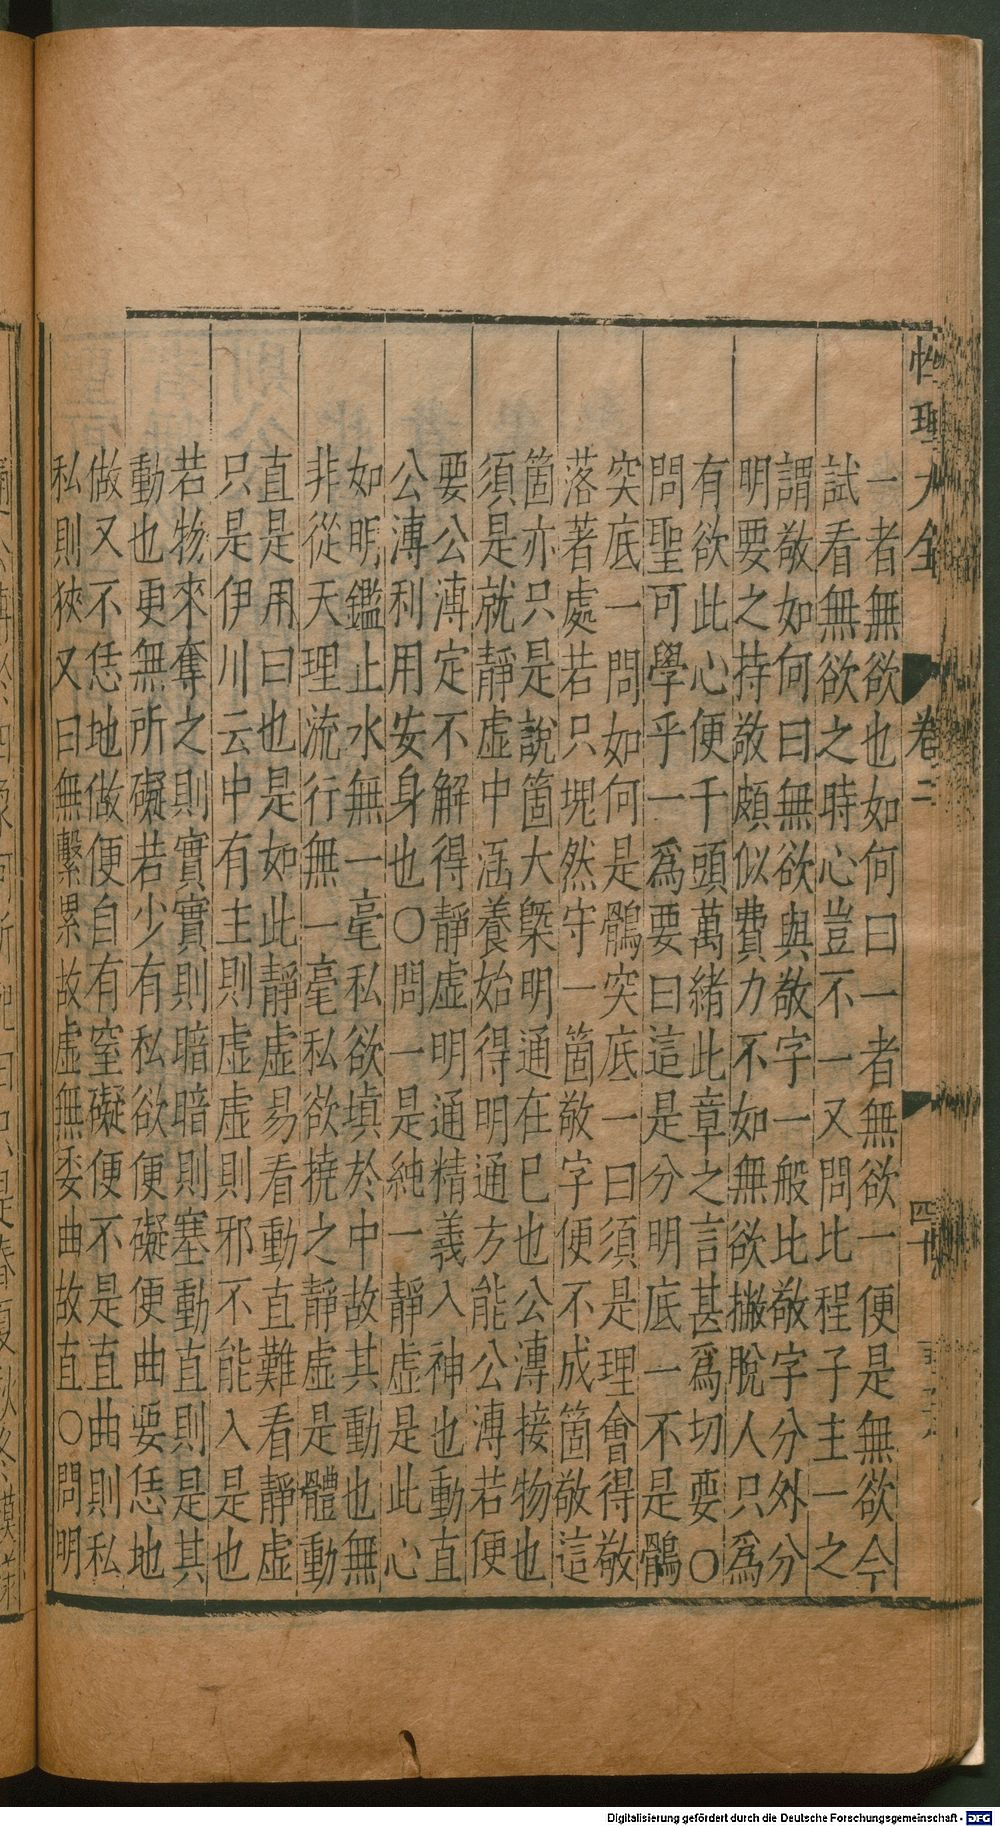 性理大全 卷二 四十
一者無欲也如何曰一者無欲一便是無欲今
試看無欲之時心豈不一又問比程子主一之
謂敬如何曰無欲與敬字一般比敬字分外分
明要之持敬頗似費力不如無欲撇脫人只爲
有欲此心便千頭萬緒此章之言甚爲切要〇
問聖可學乎一爲要曰這是分明底一不是鶻
突底一問如何是鶻突底一曰須是理會得敬
落著處若只塊然守一箇敬字便不成箇敬這
箇亦只是說箇大槩明通在已也公溥接物也
須是就靜虛中涵養始得明通方能公溥若便
要公溥定不解得靜虛明通精義入神也動直
公溥利用安身也〇問一是純一靜虛是此心
如明鑑止水無一毫私欲填於中故其動也無
非從天理流行無一毫私欲撓之靜虛是體動
直是用曰也是如此靜虛易看動直難看靜虛
只是伊川云中有主則虛虛則邪不能入是也
若物來奪之則實實則暗暗則塞動直則是其
動也更無所礙若少有私欲便礙便曲要恁地
做又不恁地做便自有窒礙便不是直曲則私
私則狹又曰無繫累故虛無委曲故直〇問明
Digitalisierung gefördert durch die Deutsche Forschungsgemeinschaft - DFG